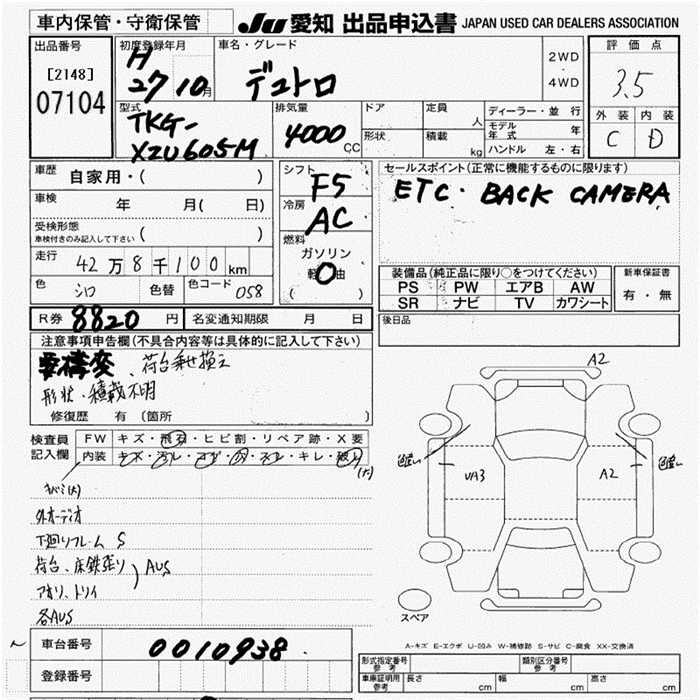 車内保管・守衛保管 JU 愛知 出品申込書 JAPAN USED CAR DEALERS ASSOCIATION
出品番号
[2148]
07104
初度登録年月
H
27 10月
車名・グレード
デュトロ
2WD
・
4WD
評価点
3.5
外装 内装
C D
型式
TKG-
XZU605M
排気量
4000 CC
ドア
定員 人
形状
積載 kg
ディーラー・並行
モデル年式 年
ハンドル 左・右
車歴 自家用・( )
車検 年 月( 日)
受検形態
車検付きのみ記入して下さい ( )
走行 42万8千100 km
色 シロ 色替 色コード 058
シフト
F5
冷房
AC
燃料
ガソリン
軽油
( )
セールスポイント(正常に機能するものに限ります)
ETC・BACK CAMERA
装備品(純正品に限り○をつけてください)
PS PW エアB AW
SR ナビ TV カワシート
新車保証書
有・無
R券 8820 円 名変通知期限 月 日
後日品
注意事項申告欄(不具合内容等は具体的に記入して下さい)
要構変 荷台乗せ換え
形状・積載不明
修復歴 有(箇所 )
検査員
記入欄
FW キズ・飛石・ヒビ割・リペア跡・X要
内装 キズ・汚レ・コゲ・穴・スレ・キレ・破レ
外オーディオ
下廻りフレーム S
荷台、床鉄張り
アオリ、トリイ
AUS
各AUS
A2
色違い
UA3
A2
色違い
スペア
A-キズ E-エクボ U-凹み W-補修跡 S-サビ C-腐食 XX-交換済
車台番号 0010938
登録番号
形式指定番号
参考
類別区分番号
参考
車庫証明用
参考
長さ cm 幅 cm 高さ cm